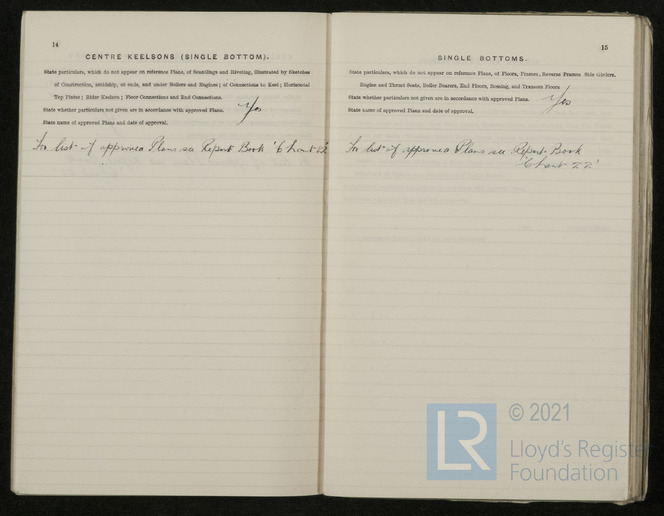 14
CENTRE KEELSONS (SINGLE BOTTOM).
State particulars, which do not appear on reference Plans, of Scantlings and Riveting, illustrated by Sketches
of Construction, amidship, at ends, and under Boilers and Engines; of Connections to Keel; Horizontal
Top Plates; Rider Keelson; Floor Connections and End Connections.
State whether particulars not given are in accordance with approved Plans. Yes
State name of approved Plans and date of approval.
For list of approved Plans see Report Book
15
SINGLE BOTTOMS.
State particulars, which do not appear on reference Plans, of Floors, Frames, Reverse Frames Side Girders,
Engine and Thrust Seats, Boiler Bearers, End Floors, Bossing, and Transom Floors
State whether particulars not given are in accordance with approved Plans. Yes
State name of approved Plans and date of approval.
For list of approved Plans see Report Book
LR
© 2021
Lloyd's Register
Foundation